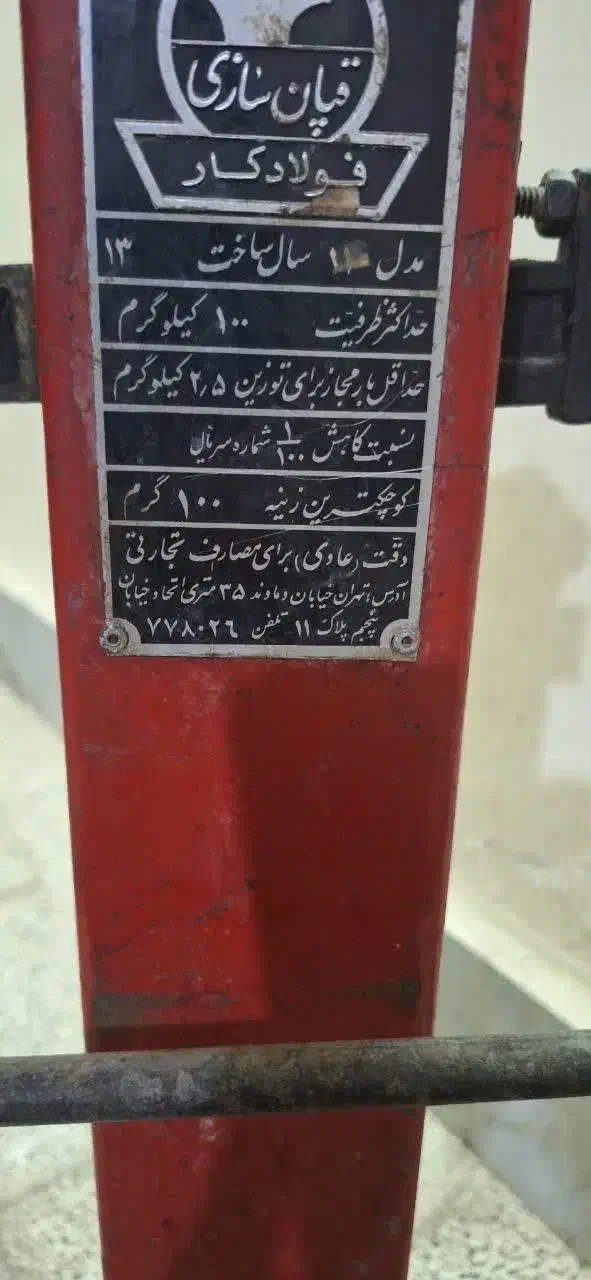 قپان سازی
فولادکار
مدل سال ساخت ۱۳
حداکثر ظرفیت ۱۰۰ کیلوگرم
حداقل بار مجاز برای توزین ۲٫۵ کیلوگرم
نسبت کاهش ۱/۱۰۰ شماره سریال
کوچکترین زینه ۱۰۰ گرم
دقت (عادی) برای مصارف تجارتی
آدرس: تهران خیابان دماوند ۳۵ متری اتحاد خیابان
پنجم پلاک ۱۱ تلفن ۷۷۸۰۲۶